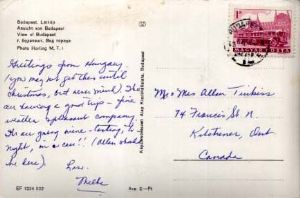 Budapest. Látkép
Ansicht von Budapest
View of Budapest
г. Будапешт. Вид города
Photo Horling M. T. I.
Greetings from Hungary
(you may not get them until
Christmas, but never mind!) We
are having a good trip - fine
weather & pleasant company.
We are going wine-tasting, to-
night, in a cave!! (Allen should
be here).
Love,
MAGYAR POSTA
Mr & Mrs Allen
74 Francis St N.
Kitchener, Ont
Canada
Képzőművészeti Alap Kiadóvállalata, Budapest